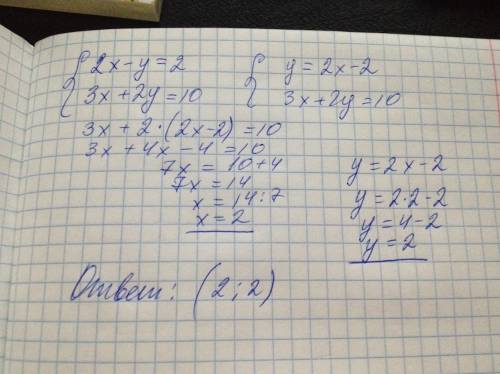 { 2x-y=2
3x+2y=10
{ y=2x-2
3x+2y=10
3x+2·(2x-2)=10
3x+4x-4=10
7x=10+4
7x=14
x=14:7
x=2
y=2x-2
y=2·2-2
y=4-2
y=2
Ответ: (2;2)